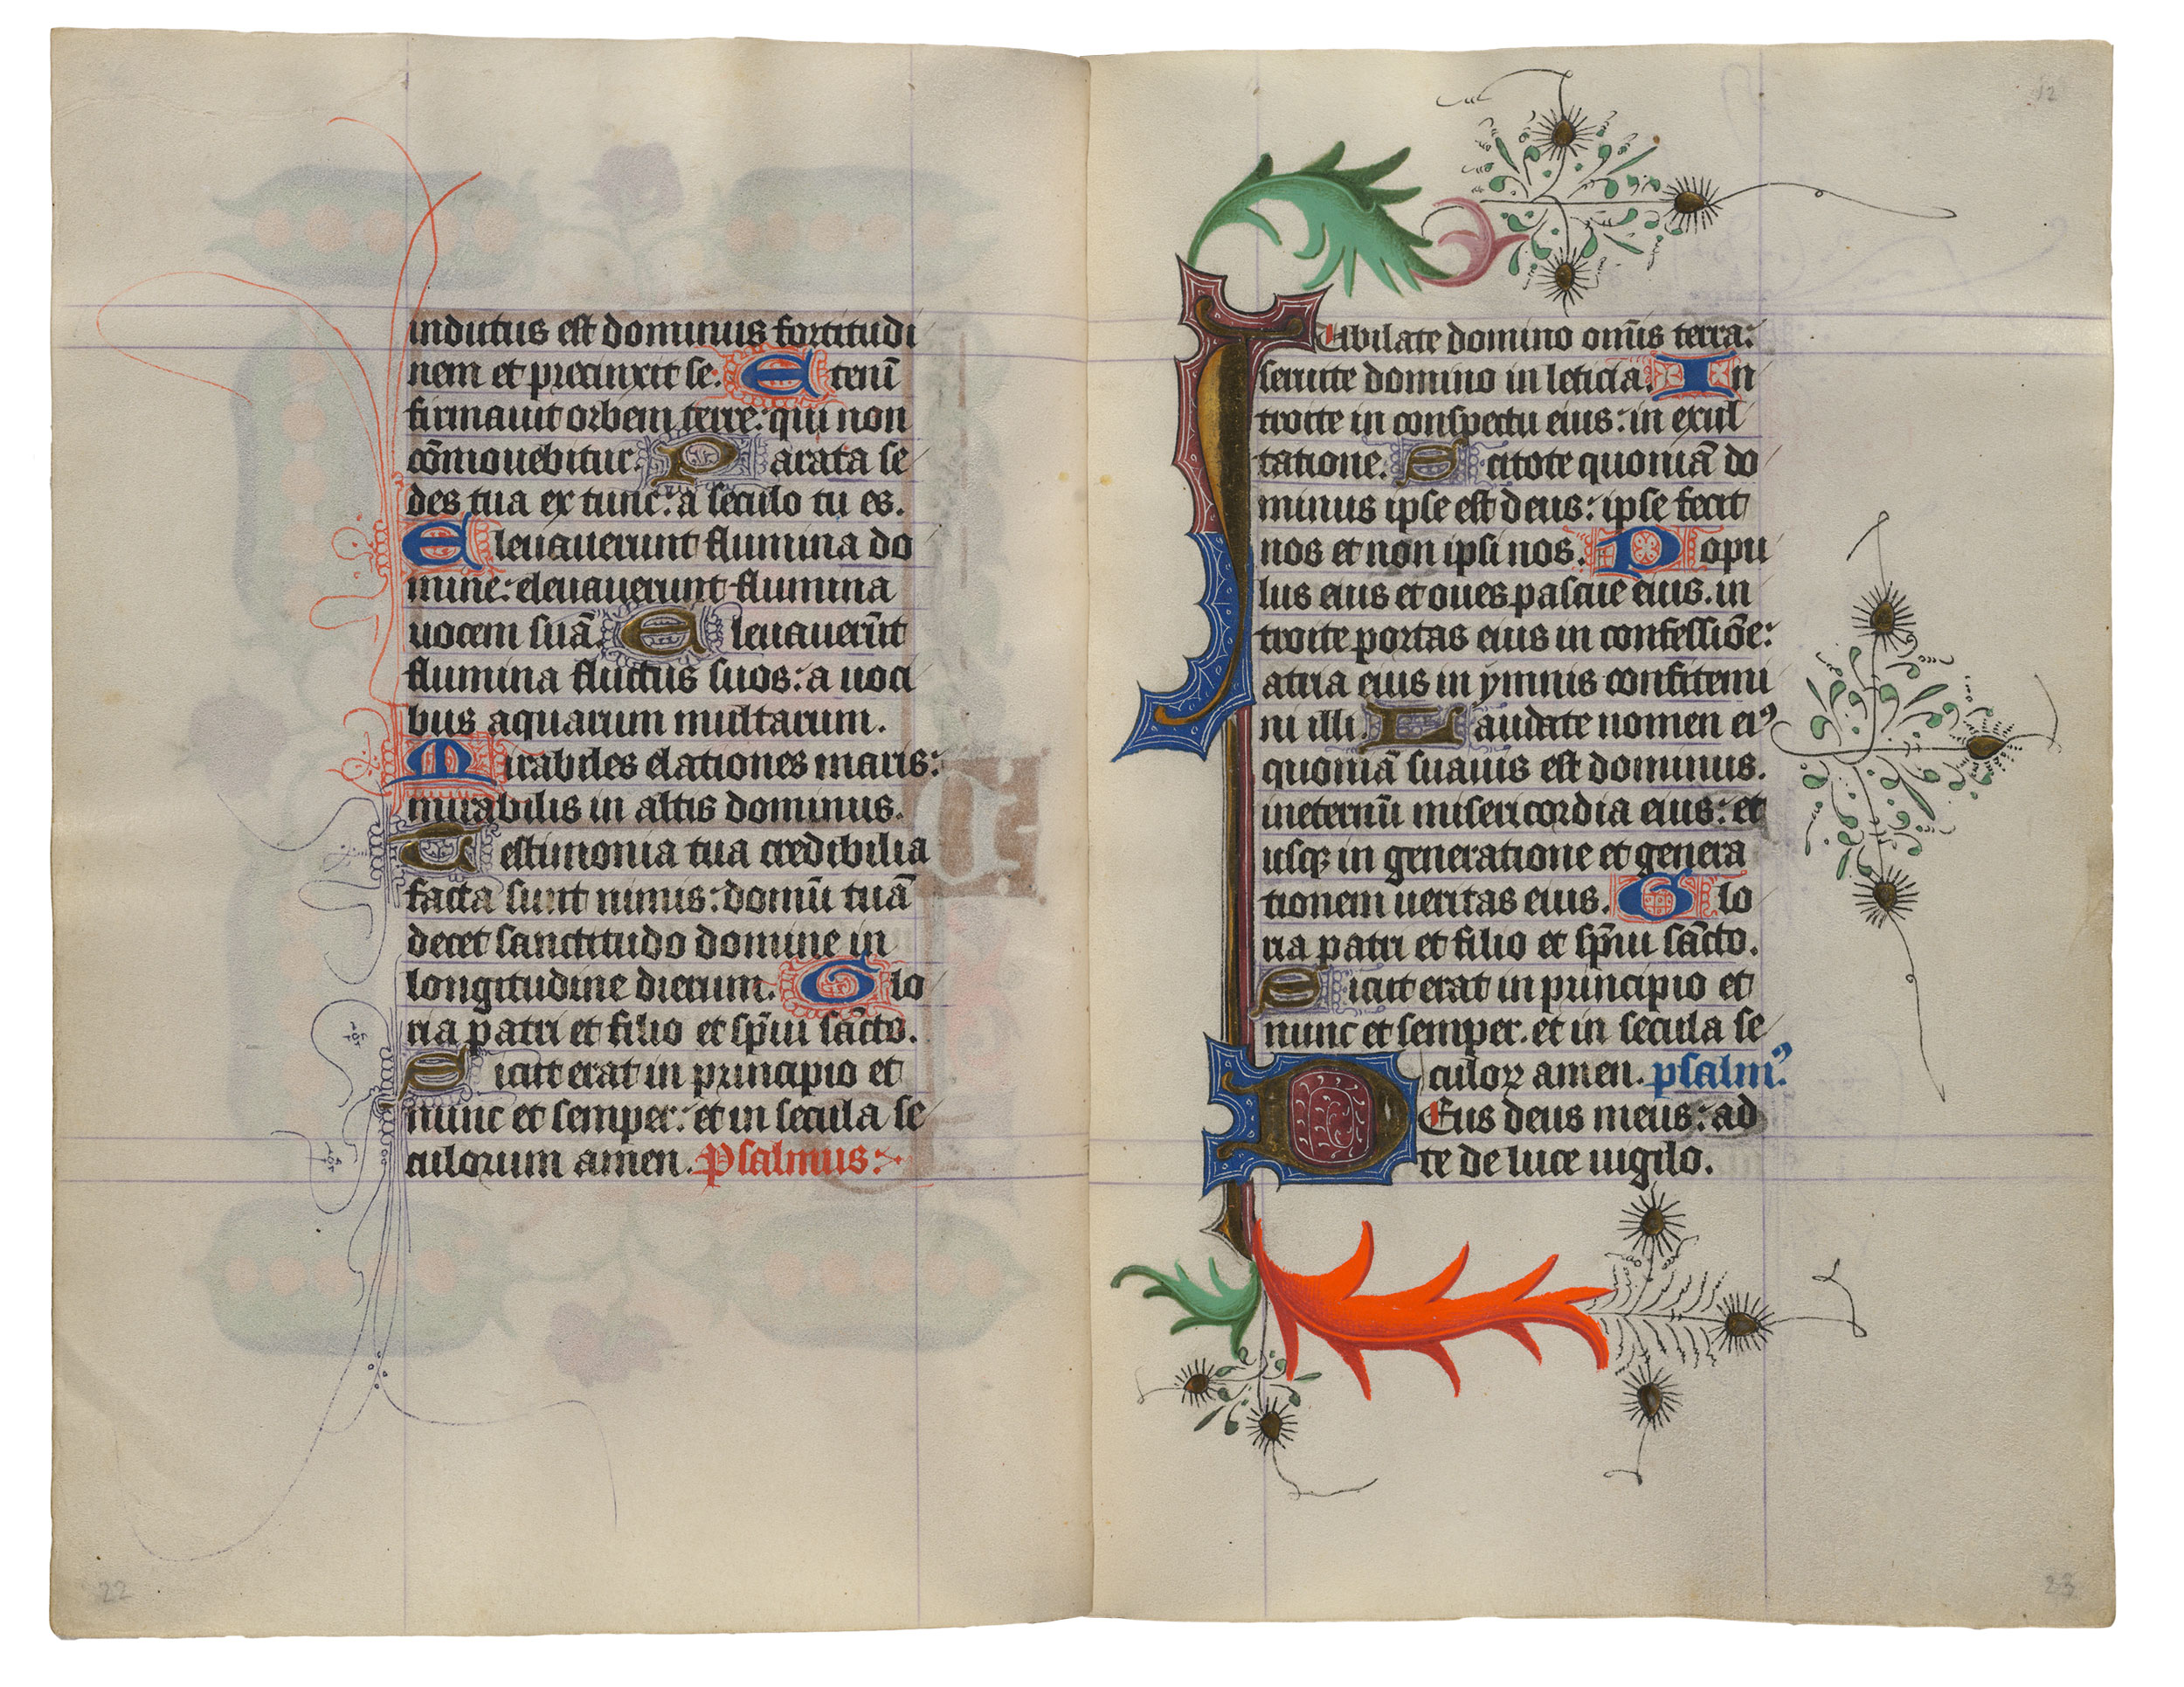 indutus est dominus fortitudi
nem et precinxit se. Etenī
firmauit orbem terre: qui non
cōmouebitur. Parata se
des tua ex tunc: a seculo tu es.
Eleuauerunt flumina do
mine: eleuauerunt flumina
uocem suā. Eleuauerūt
flumina fluctus suos: a uoci
bus aquarum multarum.
Mirabiles elationes maris:
mirabilis in altis dominus.
Testimonia tua credibilia
facta sunt nimis: domū tuā
decet sanctitudo domine in
longitudine dierum. Glo
ria patri et filio et sp̄ui sācto.
Sicut erat in principio et
nunc et semper: et in secula se
culorum amen. Psalmus:
22
12
Iubilate domino om̄is terra:
seruite domino in leticia. In
troite in conspectu eius: in exul
tatione. Scitote quoniā do
minus ipse est deus: ipse fecit
nos et non ipsi nos. Popu
lus eius et oues pascue eius. in
troite portas eius in confessiōe:
atria eius in ymnis confitemi
ni illi. Laudate nomen eiꝰ
quoniā suauis est dominus.
ineternū misericordia eius: et
usqꝫ in generatione et genera
tionem ueritas eius. Glo
ria patri et filio et sp̄ui sācto.
Sicut erat in principio et
nunc et semper. et in secula se
culoꝝ amen. psalmꝰ
Deus deus meus: ad
te de luce uigilo.
23